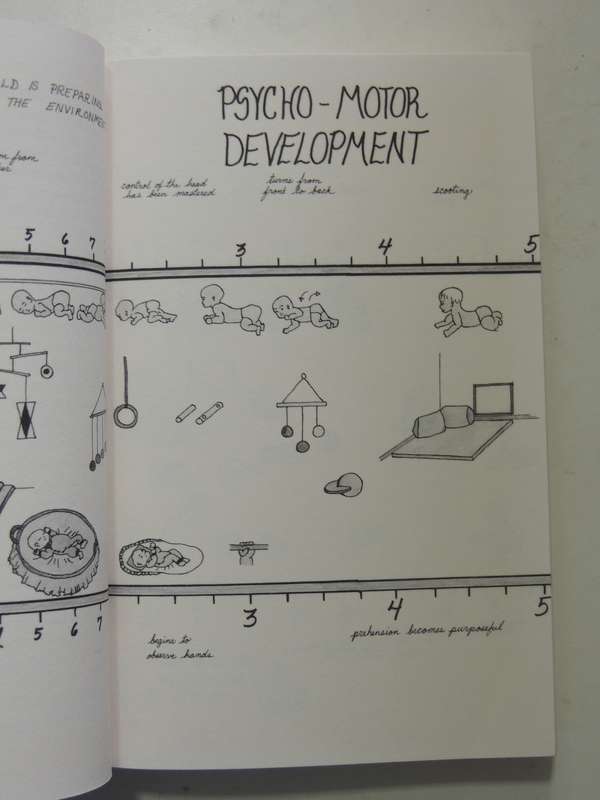 LD IS PREPARING
THE ENVIRONMENT
from
5 6 7
PSYCHO-MOTOR
DEVELOPMENT
control of the head
has been mastered
turns from
front to back
scooting
3 4 5
5 6 7
3 4 5
begins to
observe hands
prehension becomes purposeful